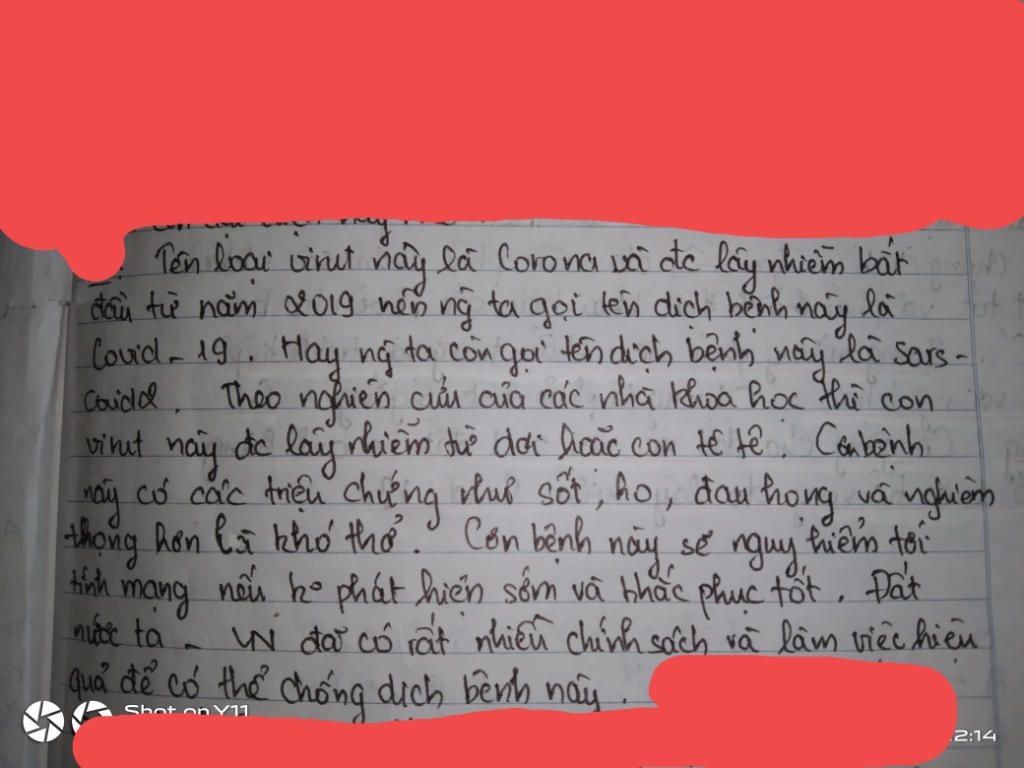 Tên loại virut này là Corona và đc lây nhiễm bắt
đầu từ năm 2019 nên ng ta gọi tên dịch bệnh này là
Covid - 19. Hay ng ta còn gọi tên dịch bệnh này là sars-
covid2. Theo nghiên cứu của các nhà khoa học thì con
virut này đc lây nhiễm từ dơi hoặc con tê tê. Cơn bệnh
này có các triệu chứng như sốt, ho, đau họng và nghiêm
thọng hơn là khó thở. Cơn bệnh này sẽ nguy hiểm tới
tính mạng nếu ko phát hiện sớm và khắc phục tốt. Đất
nước ta - VN đã có rất nhiều chính sách và làm việc hiệu
quả để có thể chống dịch bệnh này.
Shot on Y11
2:14